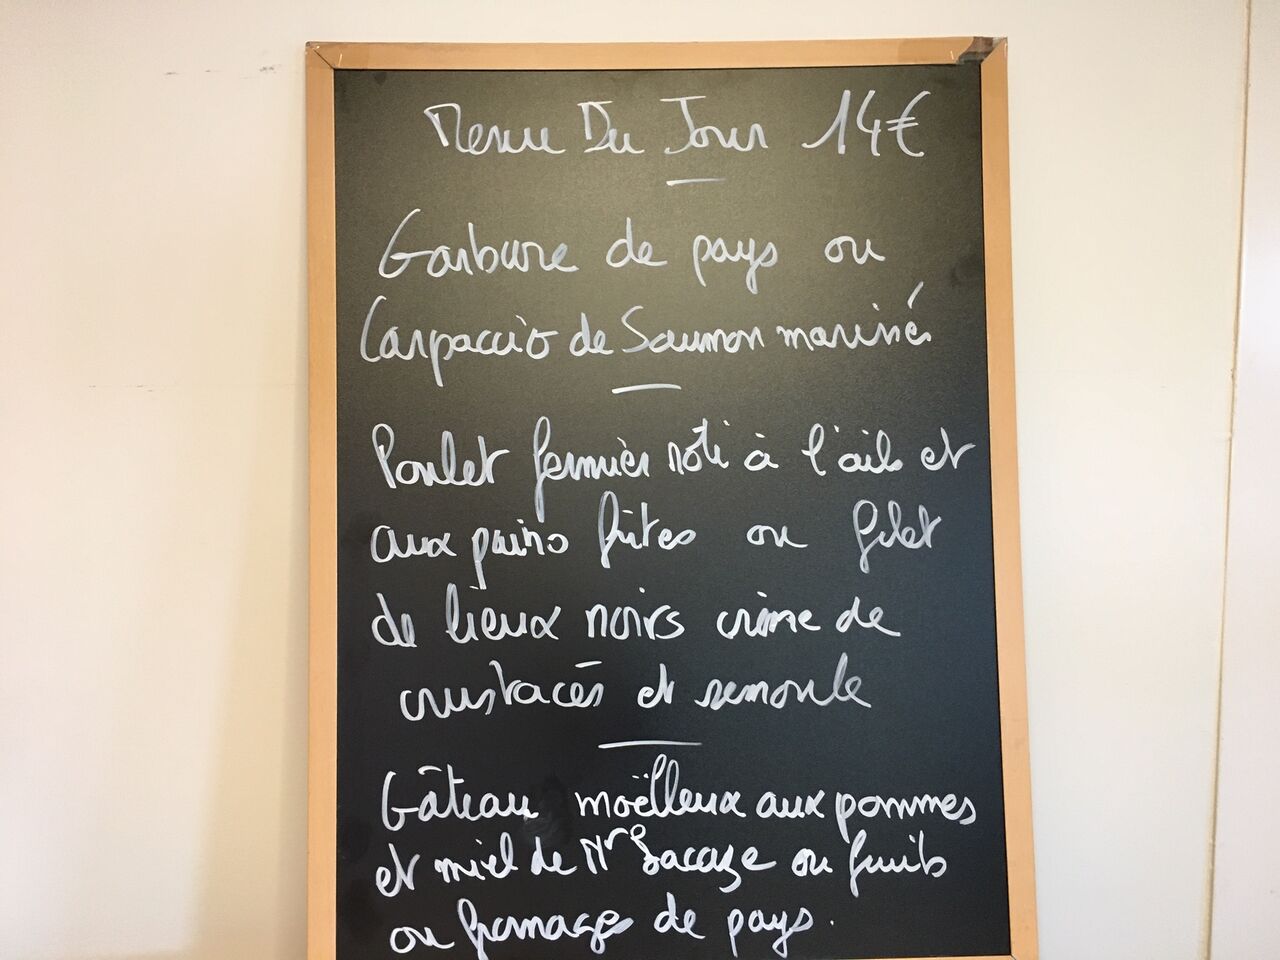 Menu Du Jour 14€
Garbure de pays ou
Carpaccio de Saumon marinés
Poulet fermier rôti à l'ails et
aux pains frites ou filet
de lieux noirs crème de
crustacés et semoule
Gâteau moëlleux aux pommes
et miel de Mr Lacaze ou fruits
ou fromage de pays.